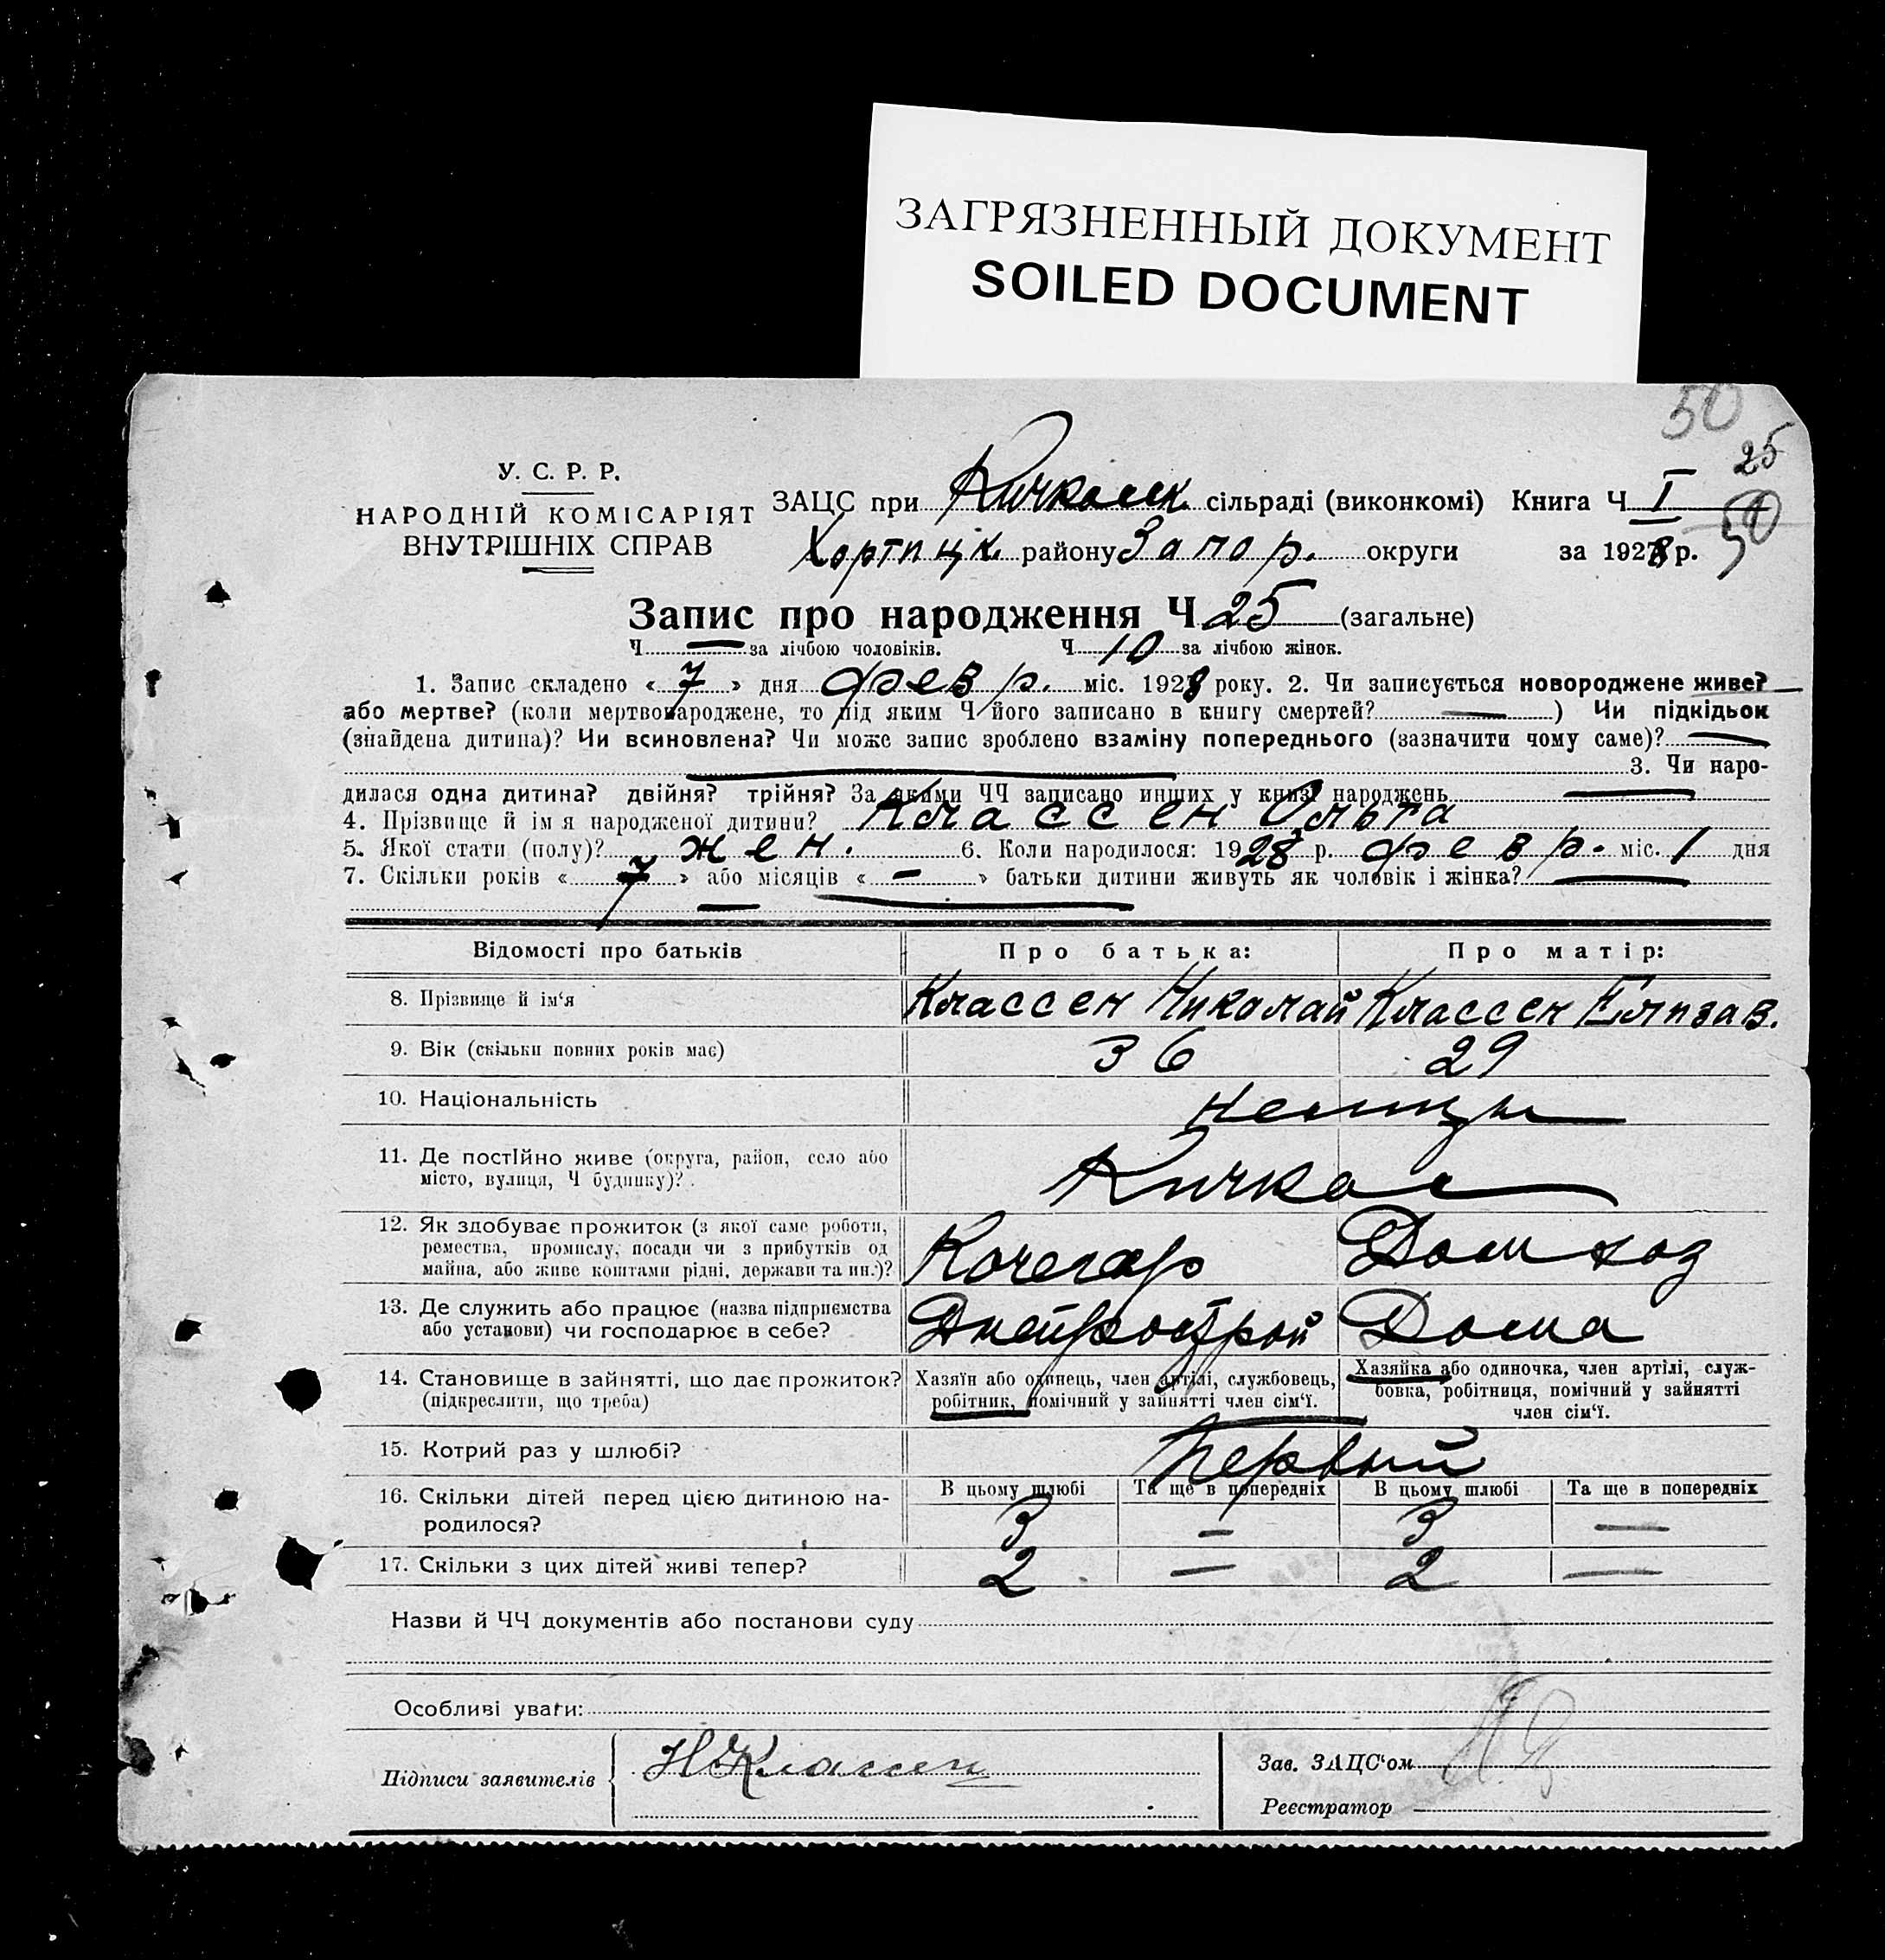 ЗАГРЯЗНЕННЫЙ ДОКУМЕНТ
SOILED DOCUMENT
50
25
50
У. С. Р. Р.
НАРОДНІЙ КОМІСАРІЯТ
ВНУТРІШНІХ СПРАВ
ЗАЦС при Кичкасск. сільраді (виконкомі) Книга Ч I
Хортицк. району Запор. округи за 1928 р.
Запис про народження Ч 25 (загальне)
Ч — за лічбою чоловіків. Ч 10 за лічбою жінок.
1. Запис складено « 7 » дня февр. міс. 1928 року. 2. Чи записується новороджене живе?
або мертве? (коли мертвонароджене, то під яким Ч його записано в книгу смертей? — ) Чи підкідьок
(знайдена дитина)? Чи всиновлена? Чи може запис зроблено взаміну попереднього (зазначити чому саме)? —
— 3. Чи наро-
дилася одна дитина? двійня? трійня? За якими ЧЧ записано инших у книзі народжень —
4. Прізвище й ім я народженої дитини? Классен Ольга
5. Якої стати (полу)? жен. 6. Коли народилося: 1928 р. февр. міс. 1 дня
7. Скільки років « 7 » або місяців « — » батьки дитини живуть як чоловік і жінка? —
Відомості про батьків Про батька: Про матір:
8. Прізвище й ім‘я Классен Николай Классен Елизав.
9. Вік (скільки повних років має) 36 29
10. Національність немцы
11. Де постІйно живе (округа, район, село або
місто, вулиця, Ч будинку)? Кичкас
12. Як здобуває прожиток (з якої саме роботи,
ремества, промислу, посади чи з прибутків од
майна, або живе коштами рідні, держави та ин.)? Кочегар Дом хоз
13. Де служить або працює (назва підприємства
або установи) чи господарює в себе? Днепрострой Дома
14. Становище в зайнятті, що дає прожиток?
(підкреслити, що треба)
Хазяїн або одинець, член артілі, службовець,
робітник, помічний у зайнятті член сім‘ї.
Хазяйка або одиночка, член артілі, служ-
бовка, робітниця, помічний у зайнятті
член сім‘ї.
15. Котрий раз у шлюбі? Первый
В цьому шлюбі Та ще в попередніх В цьому шлюбі Та ще в попередніх
16. Скільки дітей перед цією дитиною на-
родилося? 3 — 3 —
17. Скільки з цих дітей живі тепер? 2 — 2 —
Назви й ЧЧ документів або постанови суду
Особливі уваги:
Підписи заявителів Н Классен
Зав. ЗАЦС‘ом
Реєстратор